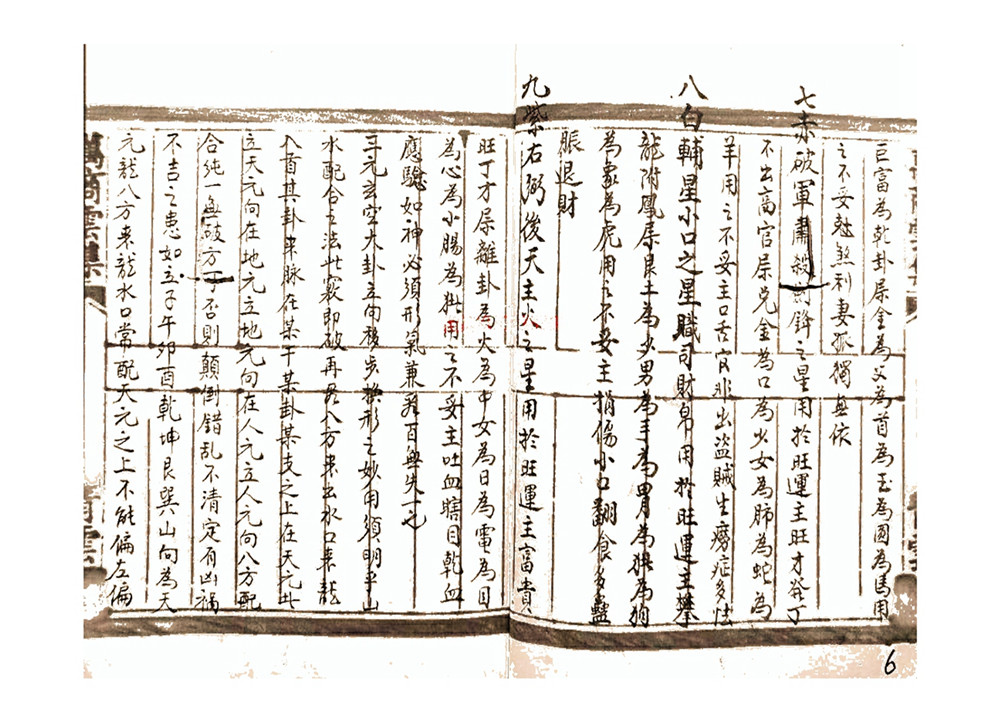 巨富為乾卦屬金為父為首為玉為圜為馬用
之不妥尅煞刑妻孤獨無依
七赤破軍肅殺劍鋒之星用於旺運主旺才發丁
不出高官屬兌金為口為少女為肺為蛇為
羊用之不妥主口舌官非出盜賊生癆症多怯
八白輔星小口之星職司財帛用於旺運主攀
龍附鳳屬艮土為少男為手為胃為拱為狗
為豕為虎用之不妥主損傷小口翻食多蠱
脹退財
九紫右弼後天主火之星用於旺運主富貴
旺丁才屬離卦為火為中女為日為電為目
為心為小腸為拱用之不妥主吐血瞎目乾血
應驗如神必須形氣兼看百無失一也
三元玄空大卦立向移步換形之妙用須明乎山
水配合之法此竅即破再看八方來出水口來龍
入首其卦來脈在某干某卦某支之上在天元出
立天元向在地元立地元向在人元立人元向八方配
合純一無破方可否則顛倒錯乱不清定有凶禍
不吉之患如立子午卯酉乾坤艮巽山向為天
元龍八方來龍水口常配天元之上不能偏左偏
萬商雲集
6